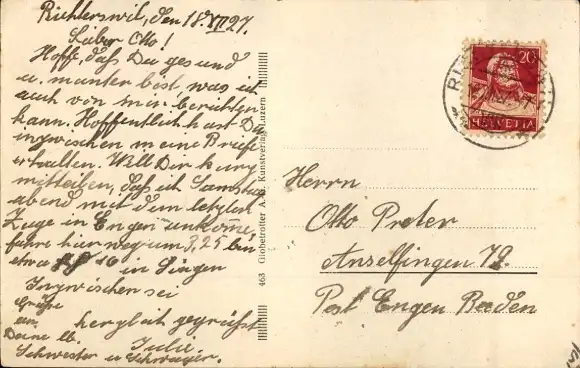 Richterswil, den 18. VII 27.
Lieber Otto!
Hoffe, daß Du gesund
u. munter bist, was ich
auch von mir berichten
kann. Hoffentlich hast Du
inzwischen meine Briefe
erhalten. Will Dir kurz
mitteilen, daß ich Samstag
abend mit dem letzten
Zuge in Engen ankomme,
fahre hier weg um 3,25 bin
etwa in Singen
Inzwischen sei
herzlich gegrüßt
Grüße
an
Deine lb. Julie.
Schwester u Schwager.
463 Globetrotter A. G. Kunstverlag Luzern
20
HELVETIA
Herrn
Otto Preter
Anselfingen 72.
Post Engen Baden